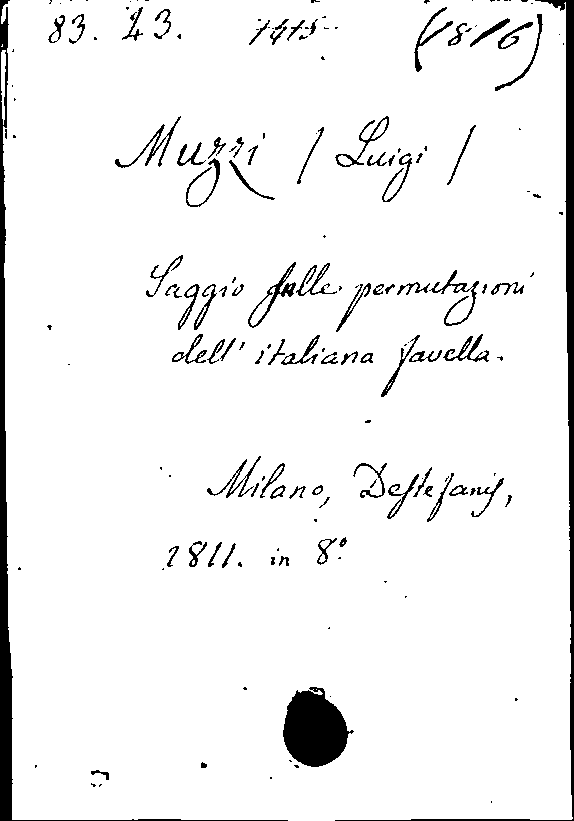 83. 23. 1415 (1816)
Muzzi / Luigi /
Saggio sulle permutazioni
dell' italiana favella.
Milano, Destefanis,
1811. in 8.º